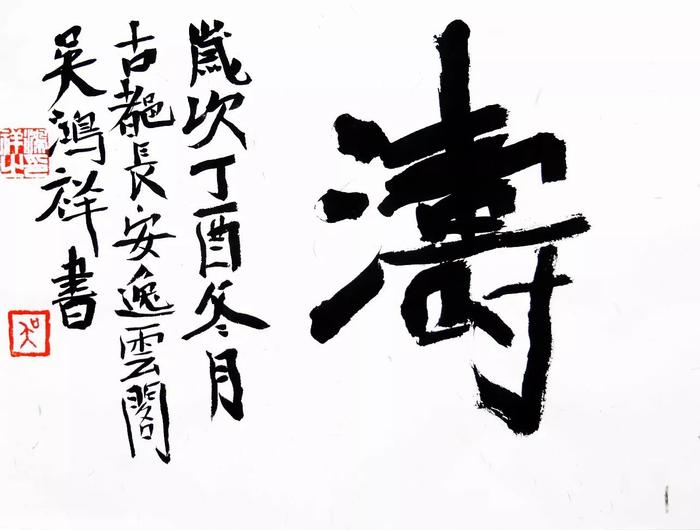 濤
歲次丁酉冬月
古都長安逸雲閣
吳鴻祥書